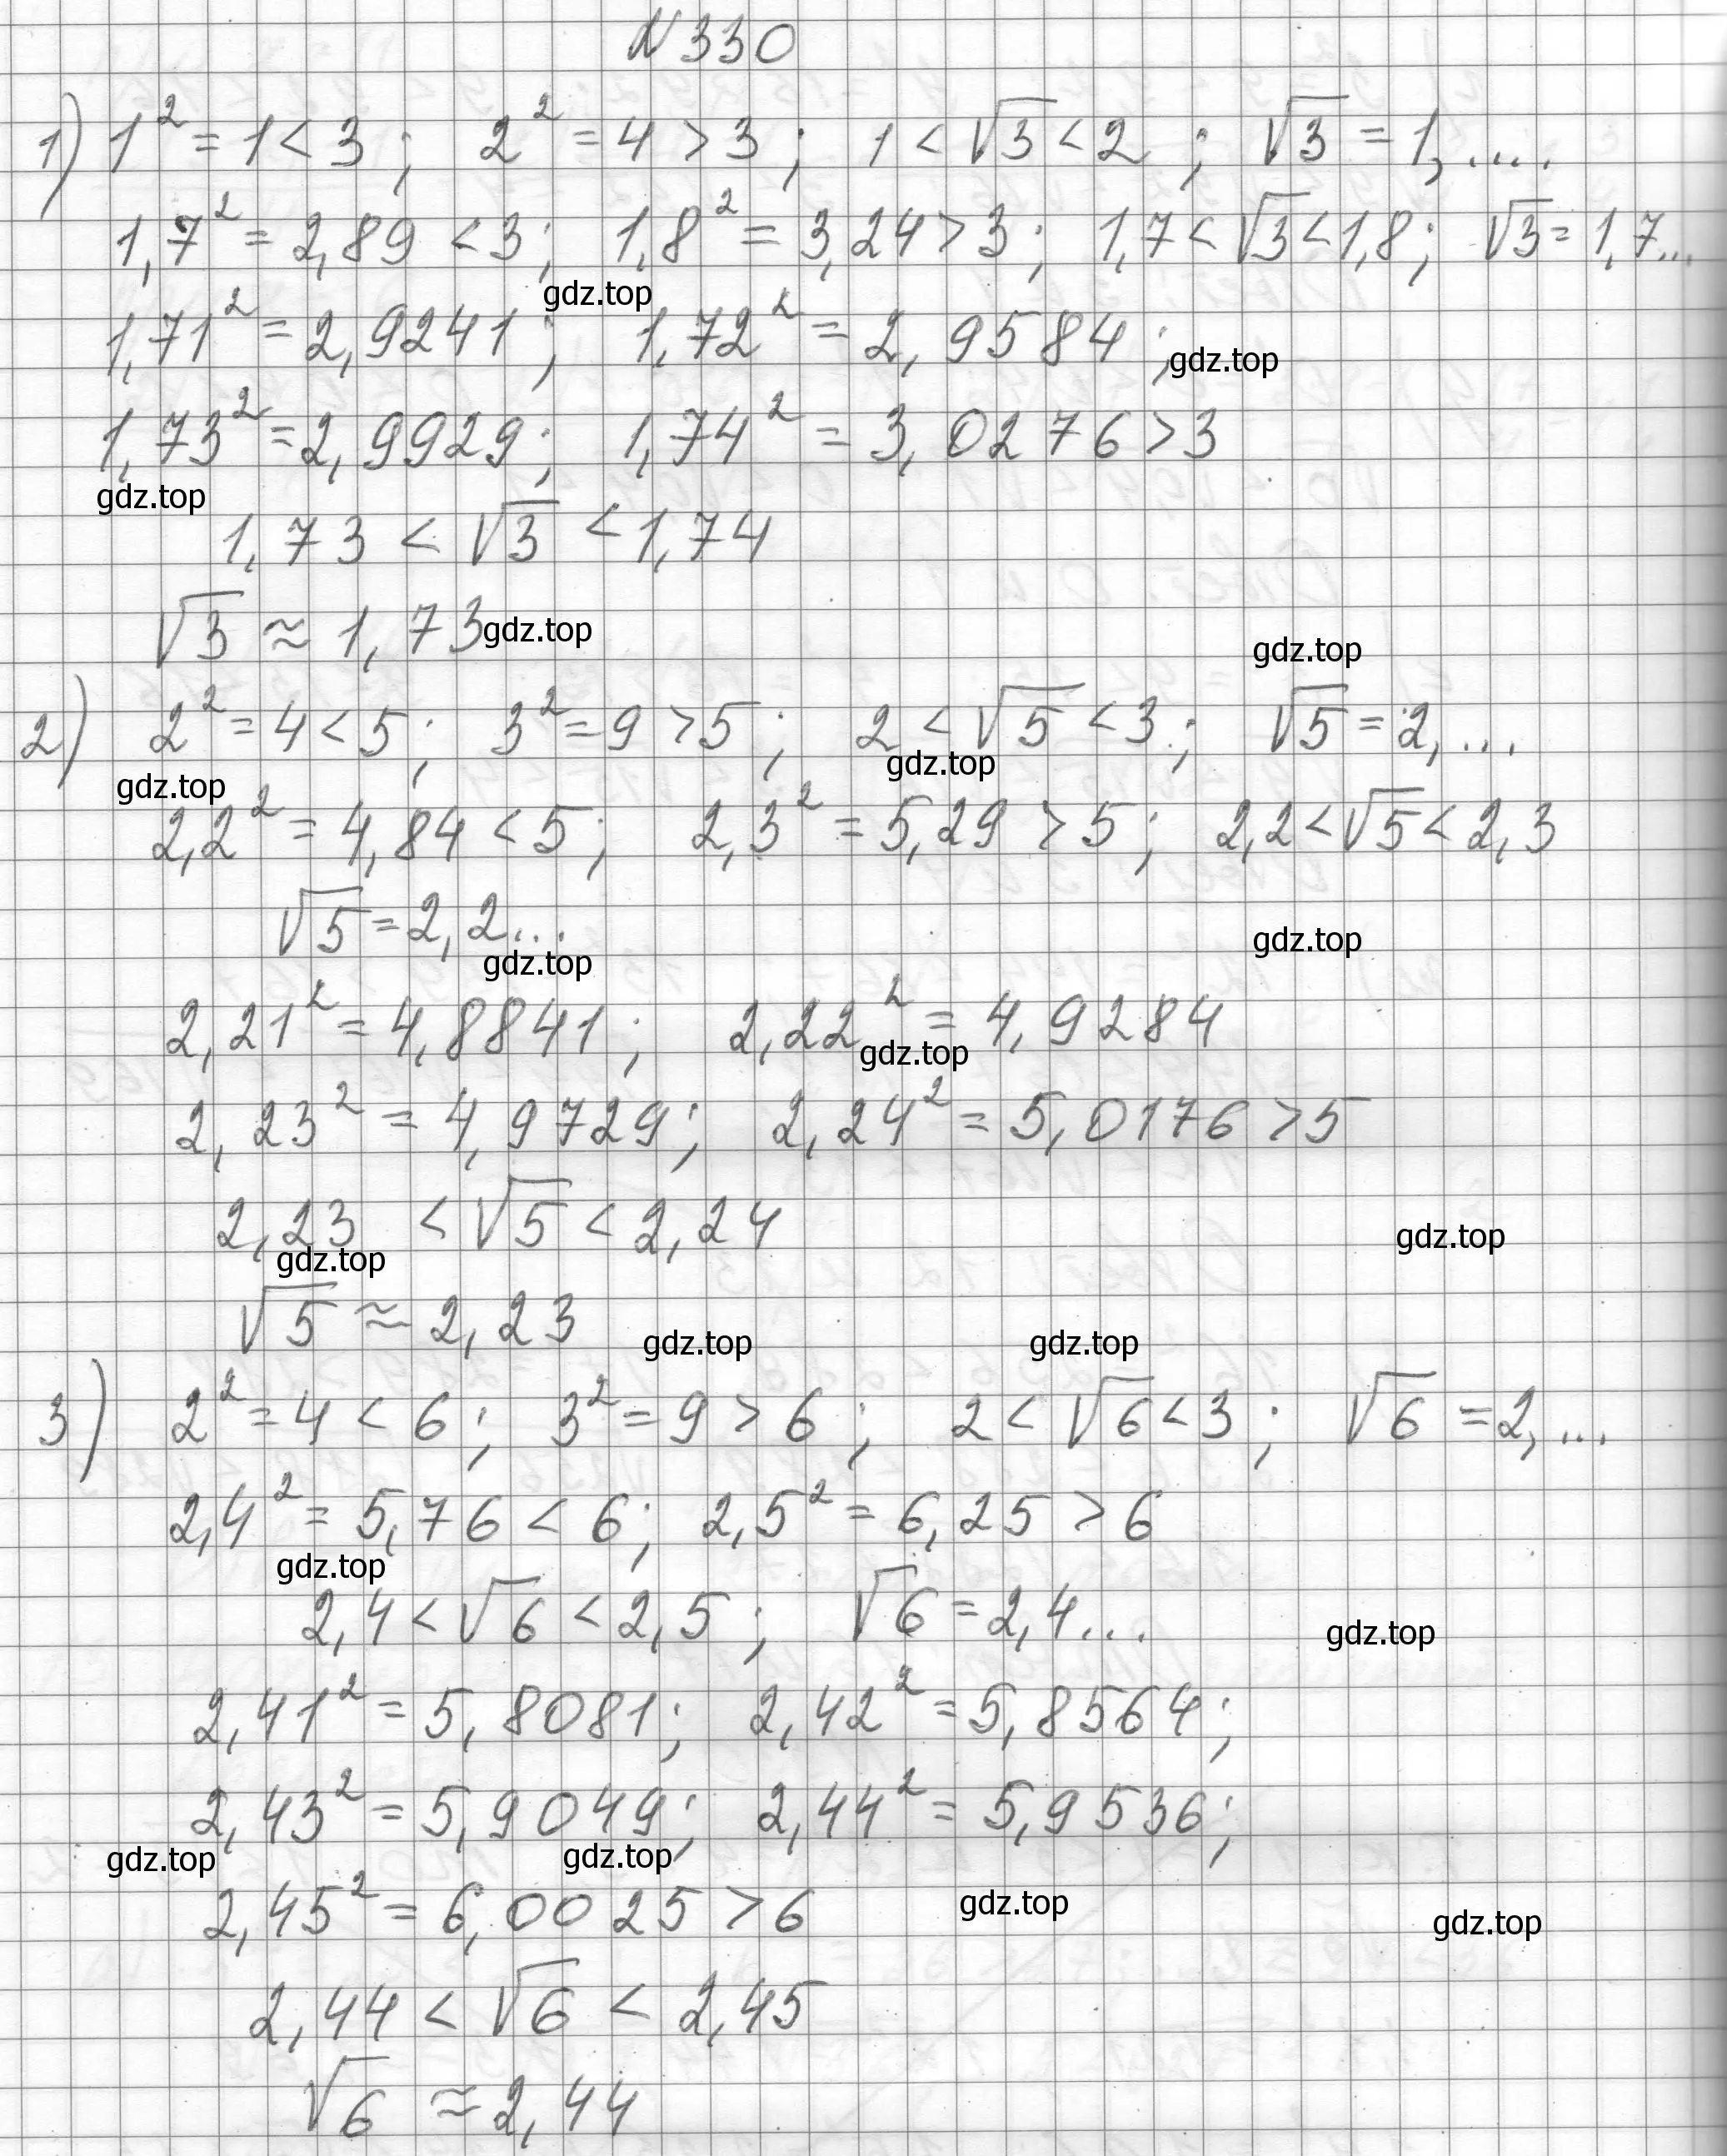 N330
1) 1² = 1 < 3 ; 2² = 4 > 3 ; 1 < √3 < 2 ; √3 = 1, ....
1,7² = 2,89 < 3 ; 1,8² = 3,24 > 3 ; 1,7 < √3 < 1,8 ; √3 = 1,7...
gdz.top
1,71² = 2,9241 ; 1,72² = 2,9584 ;
gdz.top
1,73² = 2,9929 ; 1,74² = 3,0276 > 3
gdz.top
1,73 < √3 < 1,74
√3 ≈ 1,73
gdz.top gdz.top
2) 2² = 4 < 5 ; 3² = 9 > 5 ; 2 < √5 < 3 ; √5 = 2, ...
gdz.top gdz.top
2,2² = 4,84 < 5 ; 2,3² = 5,29 > 5 ; 2,2 < √5 < 2,3
√5 = 2,2...
gdz.top gdz.top
2,21² = 4,8841 ; 2,22² = 4,9284
gdz.top
2,23² = 4,9729 ; 2,24² = 5,0176 > 5
2,23 < √5 < 2,24
gdz.top gdz.top
√5 ≈ 2,23
gdz.top gdz.top
3) 2² = 4 < 6 ; 3² = 9 > 6 ; 2 < √6 < 3 ; √6 = 2, ...
2,4² = 5,76 < 6 ; 2,5² = 6,25 > 6
gdz.top
2,4 < √6 < 2,5 ; √6 = 2,4...
gdz.top
2,41² = 5,8081 ; 2,42² = 5,8564 ;
2,43² = 5,9049 ; 2,44² = 5,9536 ;
gdz.top gdz.top
2,45² = 6,0025 > 6
gdz.top gdz.top
2,44 < √6 < 2,45
√6 ≈ 2,44